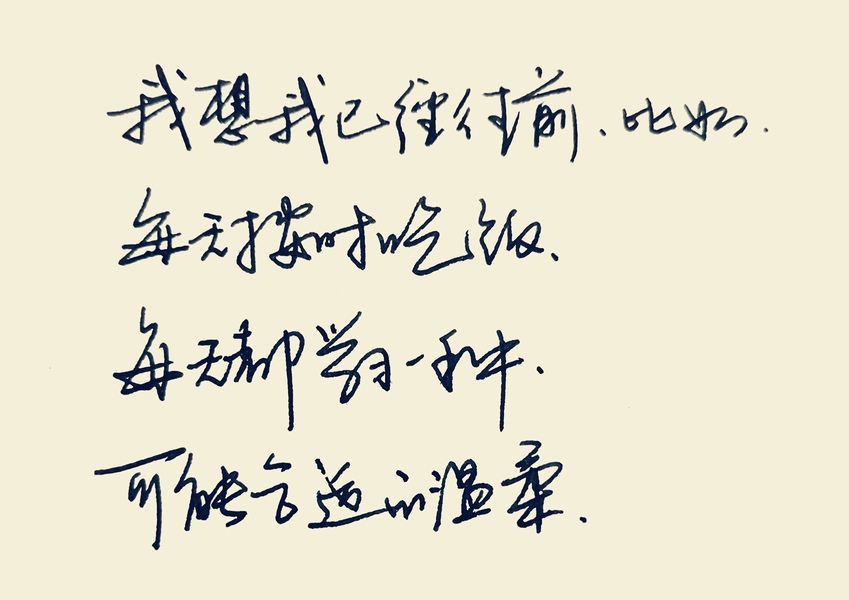 我想我已经往前、比如.
每天按时吃饭、
每天都学习一种.
可能合适的温柔.